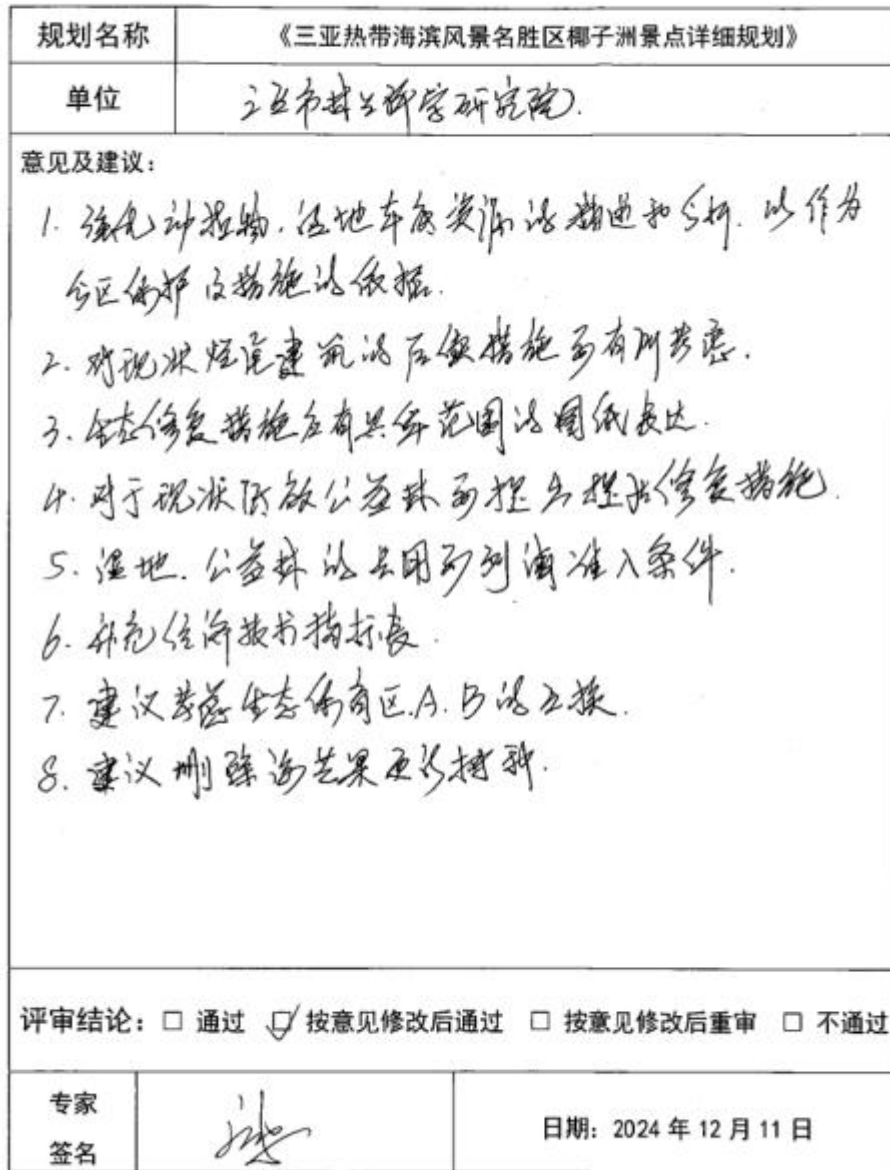 规划名称 《三亚热带海滨风景名胜区椰子洲景点详细规划》
单位 三亚市林业科学研究院
意见及建议：
1. 强化动植物、湿地本底资源的描述和分析，以作为
分区保护及措施的依据.
2. 对现状建筑的后续措施要有所考虑.
3. 生态修复措施应有具体范围的图纸表达.
4. 对于现状公益林要提出修复措施.
5. 湿地、公益林的占用要列清准入条件.
6. 补充经济技术指标表.
7. 建议考虑生态保育区A.B的互换.
8. 建议删除海芒果树种.
评审结论：□ 通过 ☑ 按意见修改后通过 □ 按意见修改后重审 □ 不通过
专家
签名
日期：2024 年 12 月 11 日